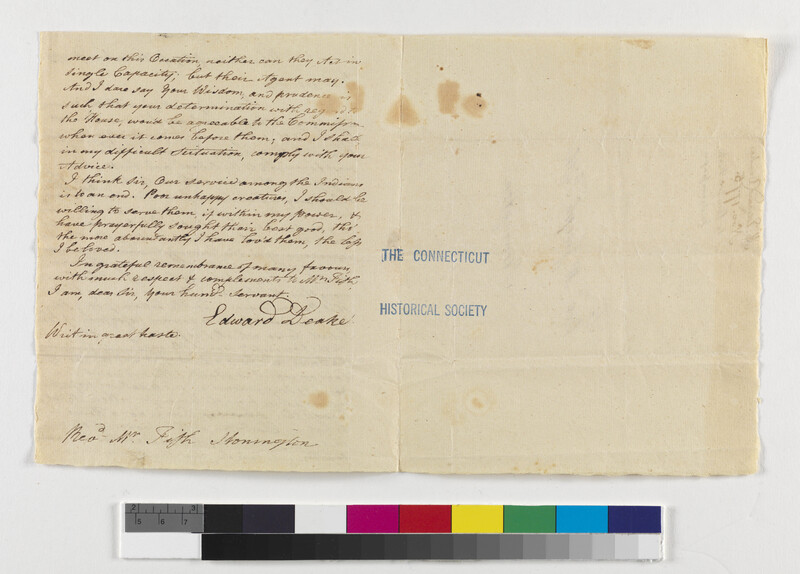 meet on this Occation, neither can they Act in
single Capacity; but their Agent may.
And I dare say Your Wisdom, and prudence is
such that your determination with regard to
the House, wou'd be agreeable to the Commissrs
when ever it comes before them; and I shall
in my difficult Situation, comply with your
Advice.
I think Sir, Our Service among the Indians
is to an end. Poor unhappy creatures, I should be
willing to serve them, if within my power, &
have prayerfully sought their best good, tho'
the more aboundantly I have lov'd them, the less
I be lov'd.
In grateful remembrance of many favours,
with much respect & complements to Mrs Fish
I am, dear Sir, Your humb. Servant.
Edward Deake
Writ in great haste.
Revd Mr Fish Stonington
THE CONNECTICUT
HISTORICAL SOCIETY
2 3
5 6 7